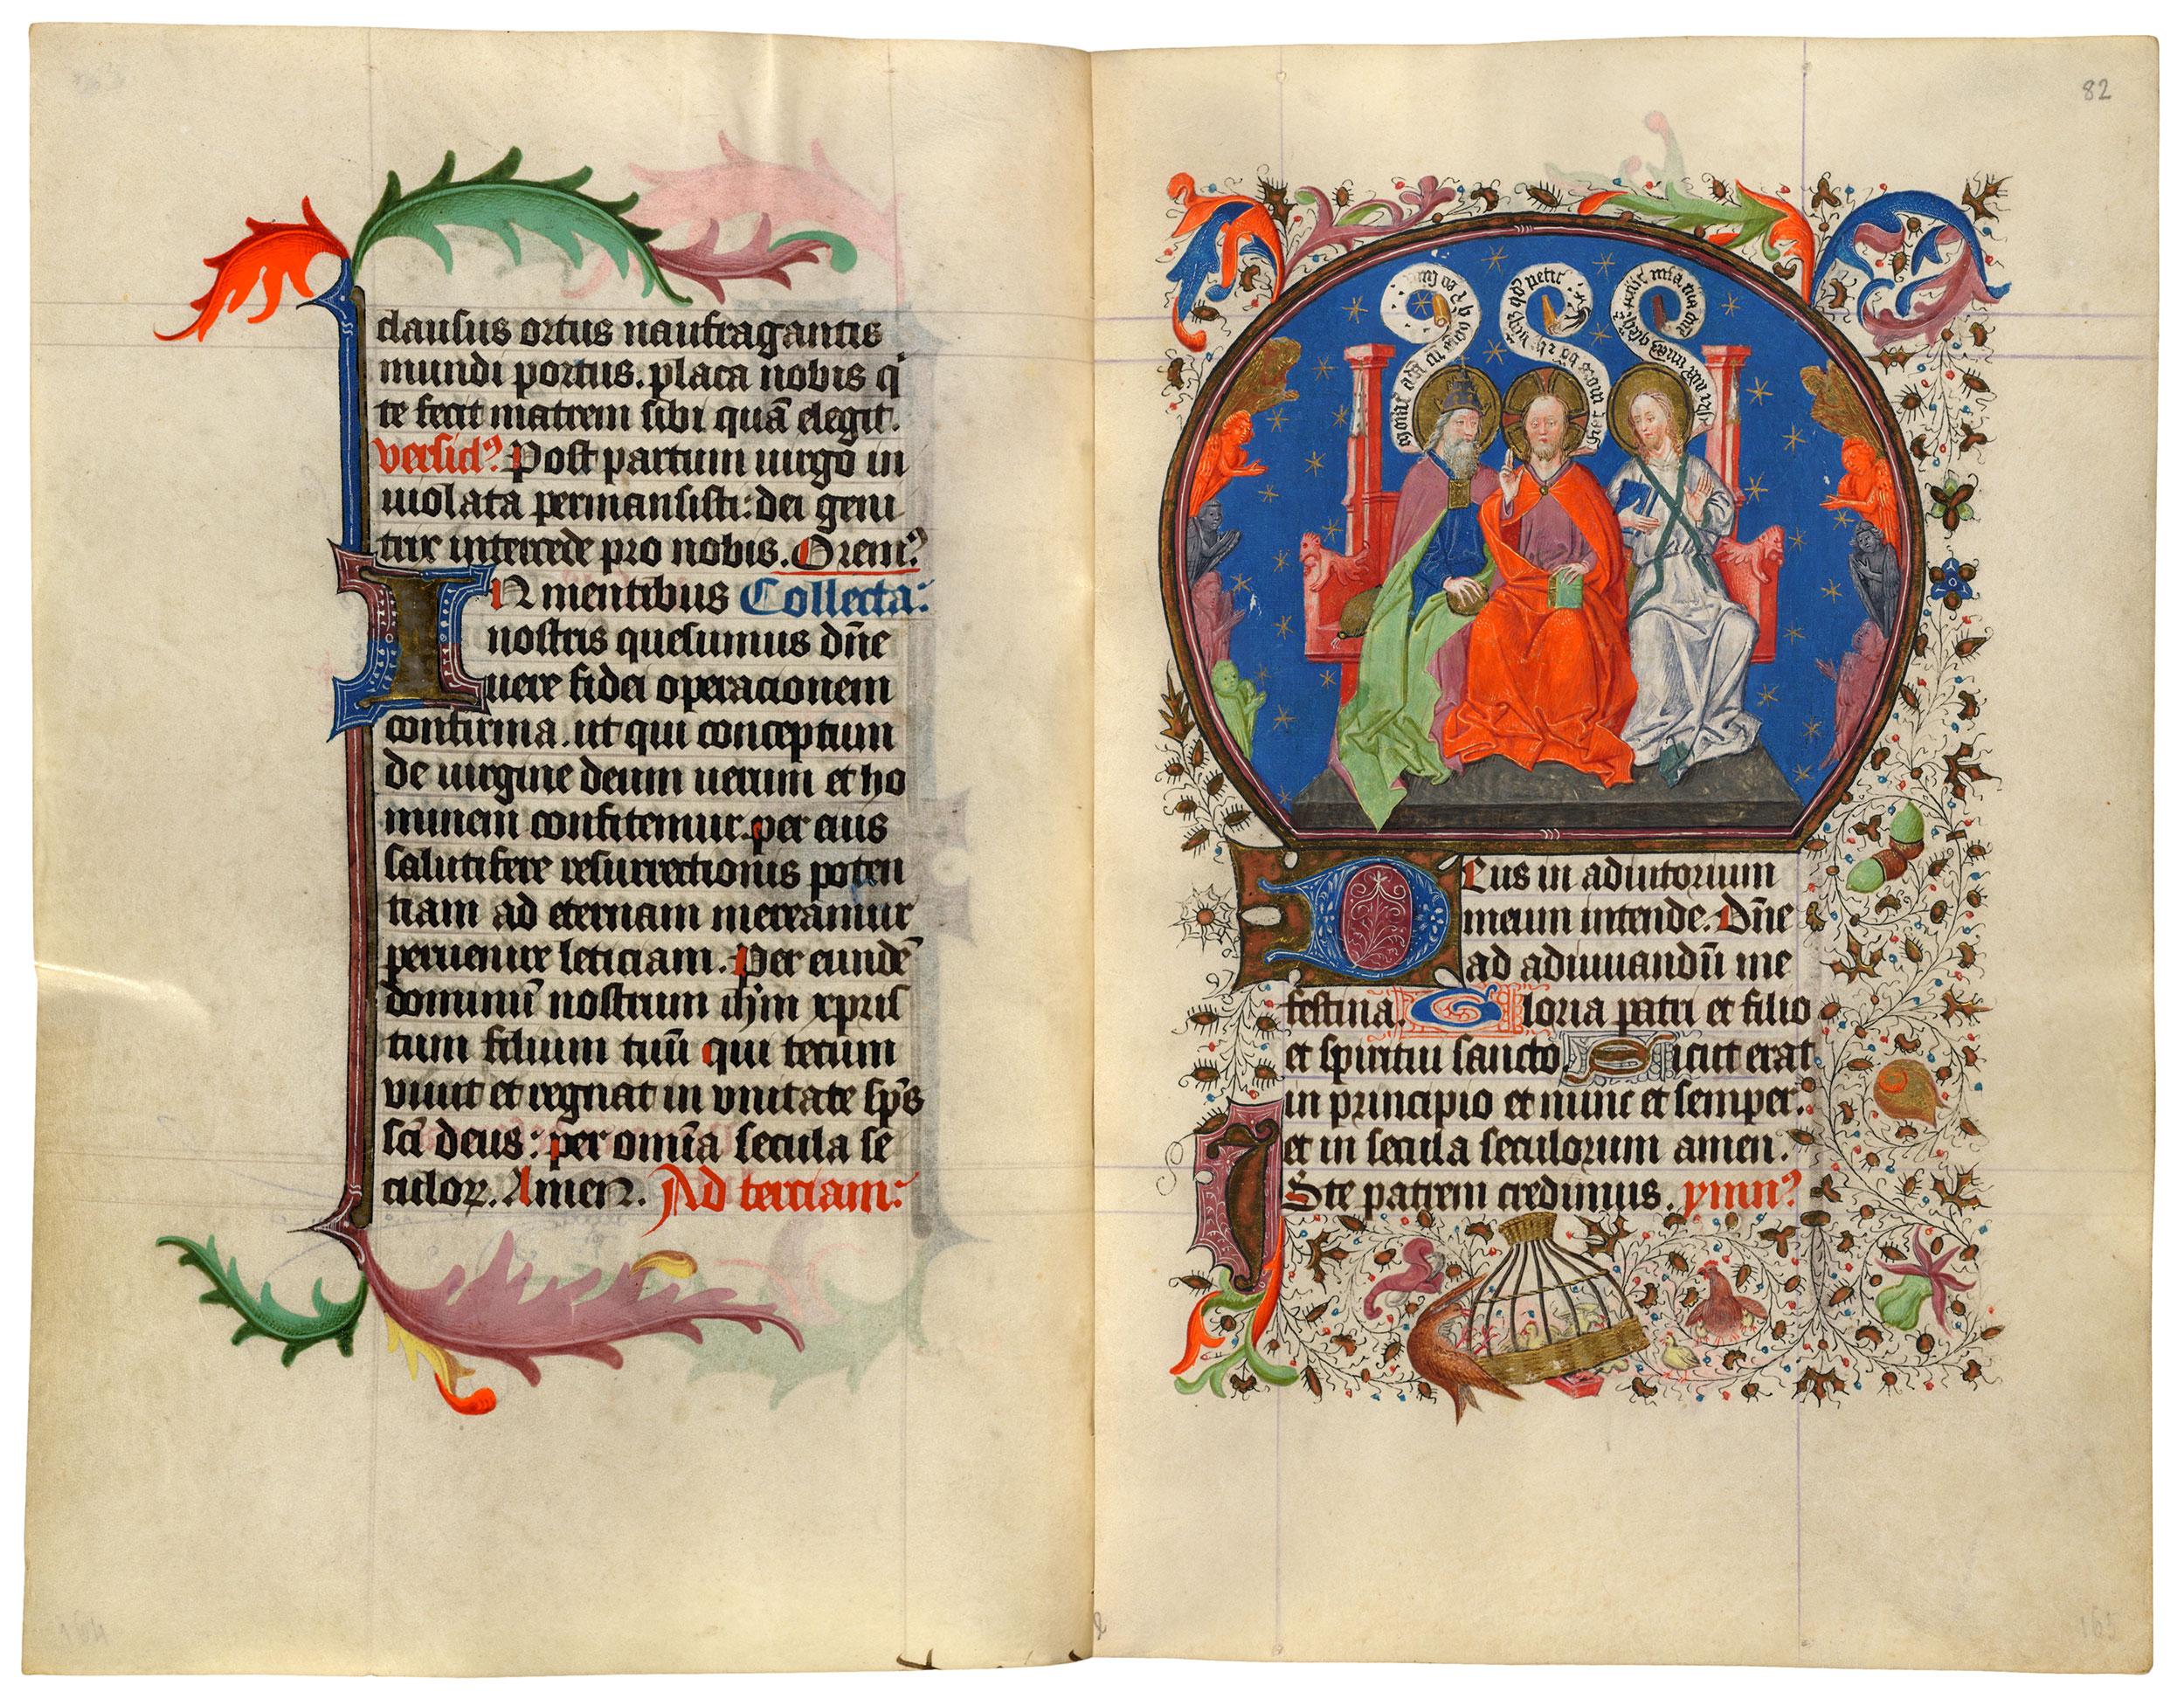 clausus ortus naufragantis
mundi portus. placa nobis q'
te fecit matrem sibi quā elegit.
versicl' Post partum uirgo in
uiolata permansisti: dei geni
trix intercede pro nobis. Orem'
IN mentibus Collecta:
nostris quesumus dn̄e
uere fidei operacionem
confirma. ut qui conceptum
de uirgine deum uerum et ho
minem confitemur. per eius
salutifere resurrectionis poten
tiam ad eternam mereamur
peruenire leticiam. Per eundē
dominū nostrum ihm xpris
tum filium tuū qui tecum
viuit et regnat in vnitate sp̄s
sc̄i deus: per om̄ia secula se
culoꝝ. Amen. Ad terciam:
82
DEus in adiutorium
meum intende. Dn̄e
ad adiuuandū me
festina. Gloria patri et filio
et spiritui sancto Sicut erat
in principio et nunc et semper.
et in secula seculorum amen.
ISte patrem credimus. ymn'
164
163